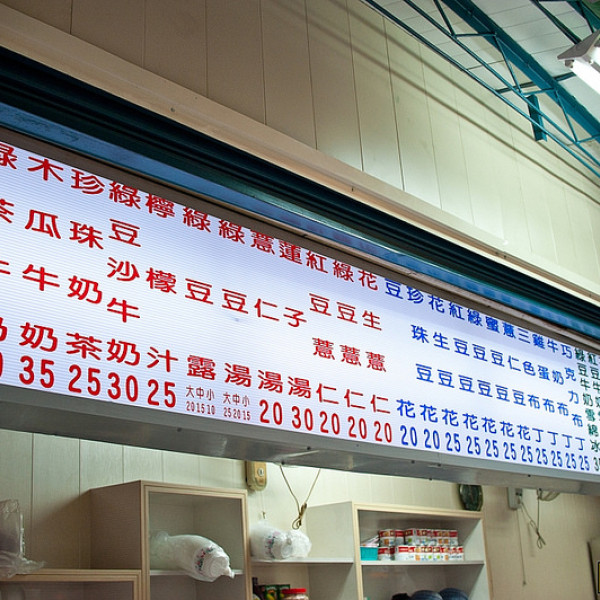 綠茶牛奶
木瓜牛奶 35
珍珠奶茶 25
綠豆沙牛奶 30
檸檬汁 25
綠豆露 大中小 20 15 10
綠豆湯 大中小 25 20 15
薏仁湯 20
蓮子湯 30
紅豆薏仁 20
綠豆薏仁 20
花生薏仁 20
豆花 20
珍珠豆花 20
花生豆花 25
紅豆豆花 25
綠豆豆花 25
蜜豆豆花 25
薏仁豆花 25
三色布丁 25
雞蛋布丁 25
牛奶布丁 25
巧克力布丁 25
綠豆牛奶雪綿冰
紅豆牛奶